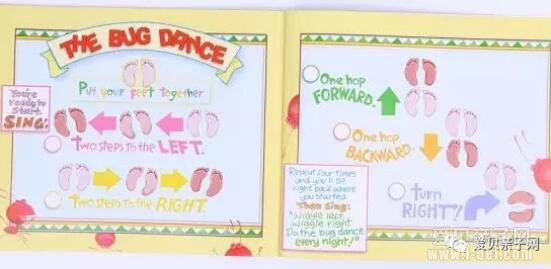 THE BUG DANCE
Put your feet together
You're
ready to
Start.
SING.
Two steps to the LEFT.
Two steps to the RIGHT.
One hop
FORWARD.
One hop
BACKWARD.
Repeat four times
and you'll be
right back where
you started.
Then Sing:
"Wiggle left,
wiggle right.
Do the bug dance
every night!"
Turn
RIGHT!
爱贝亲子网